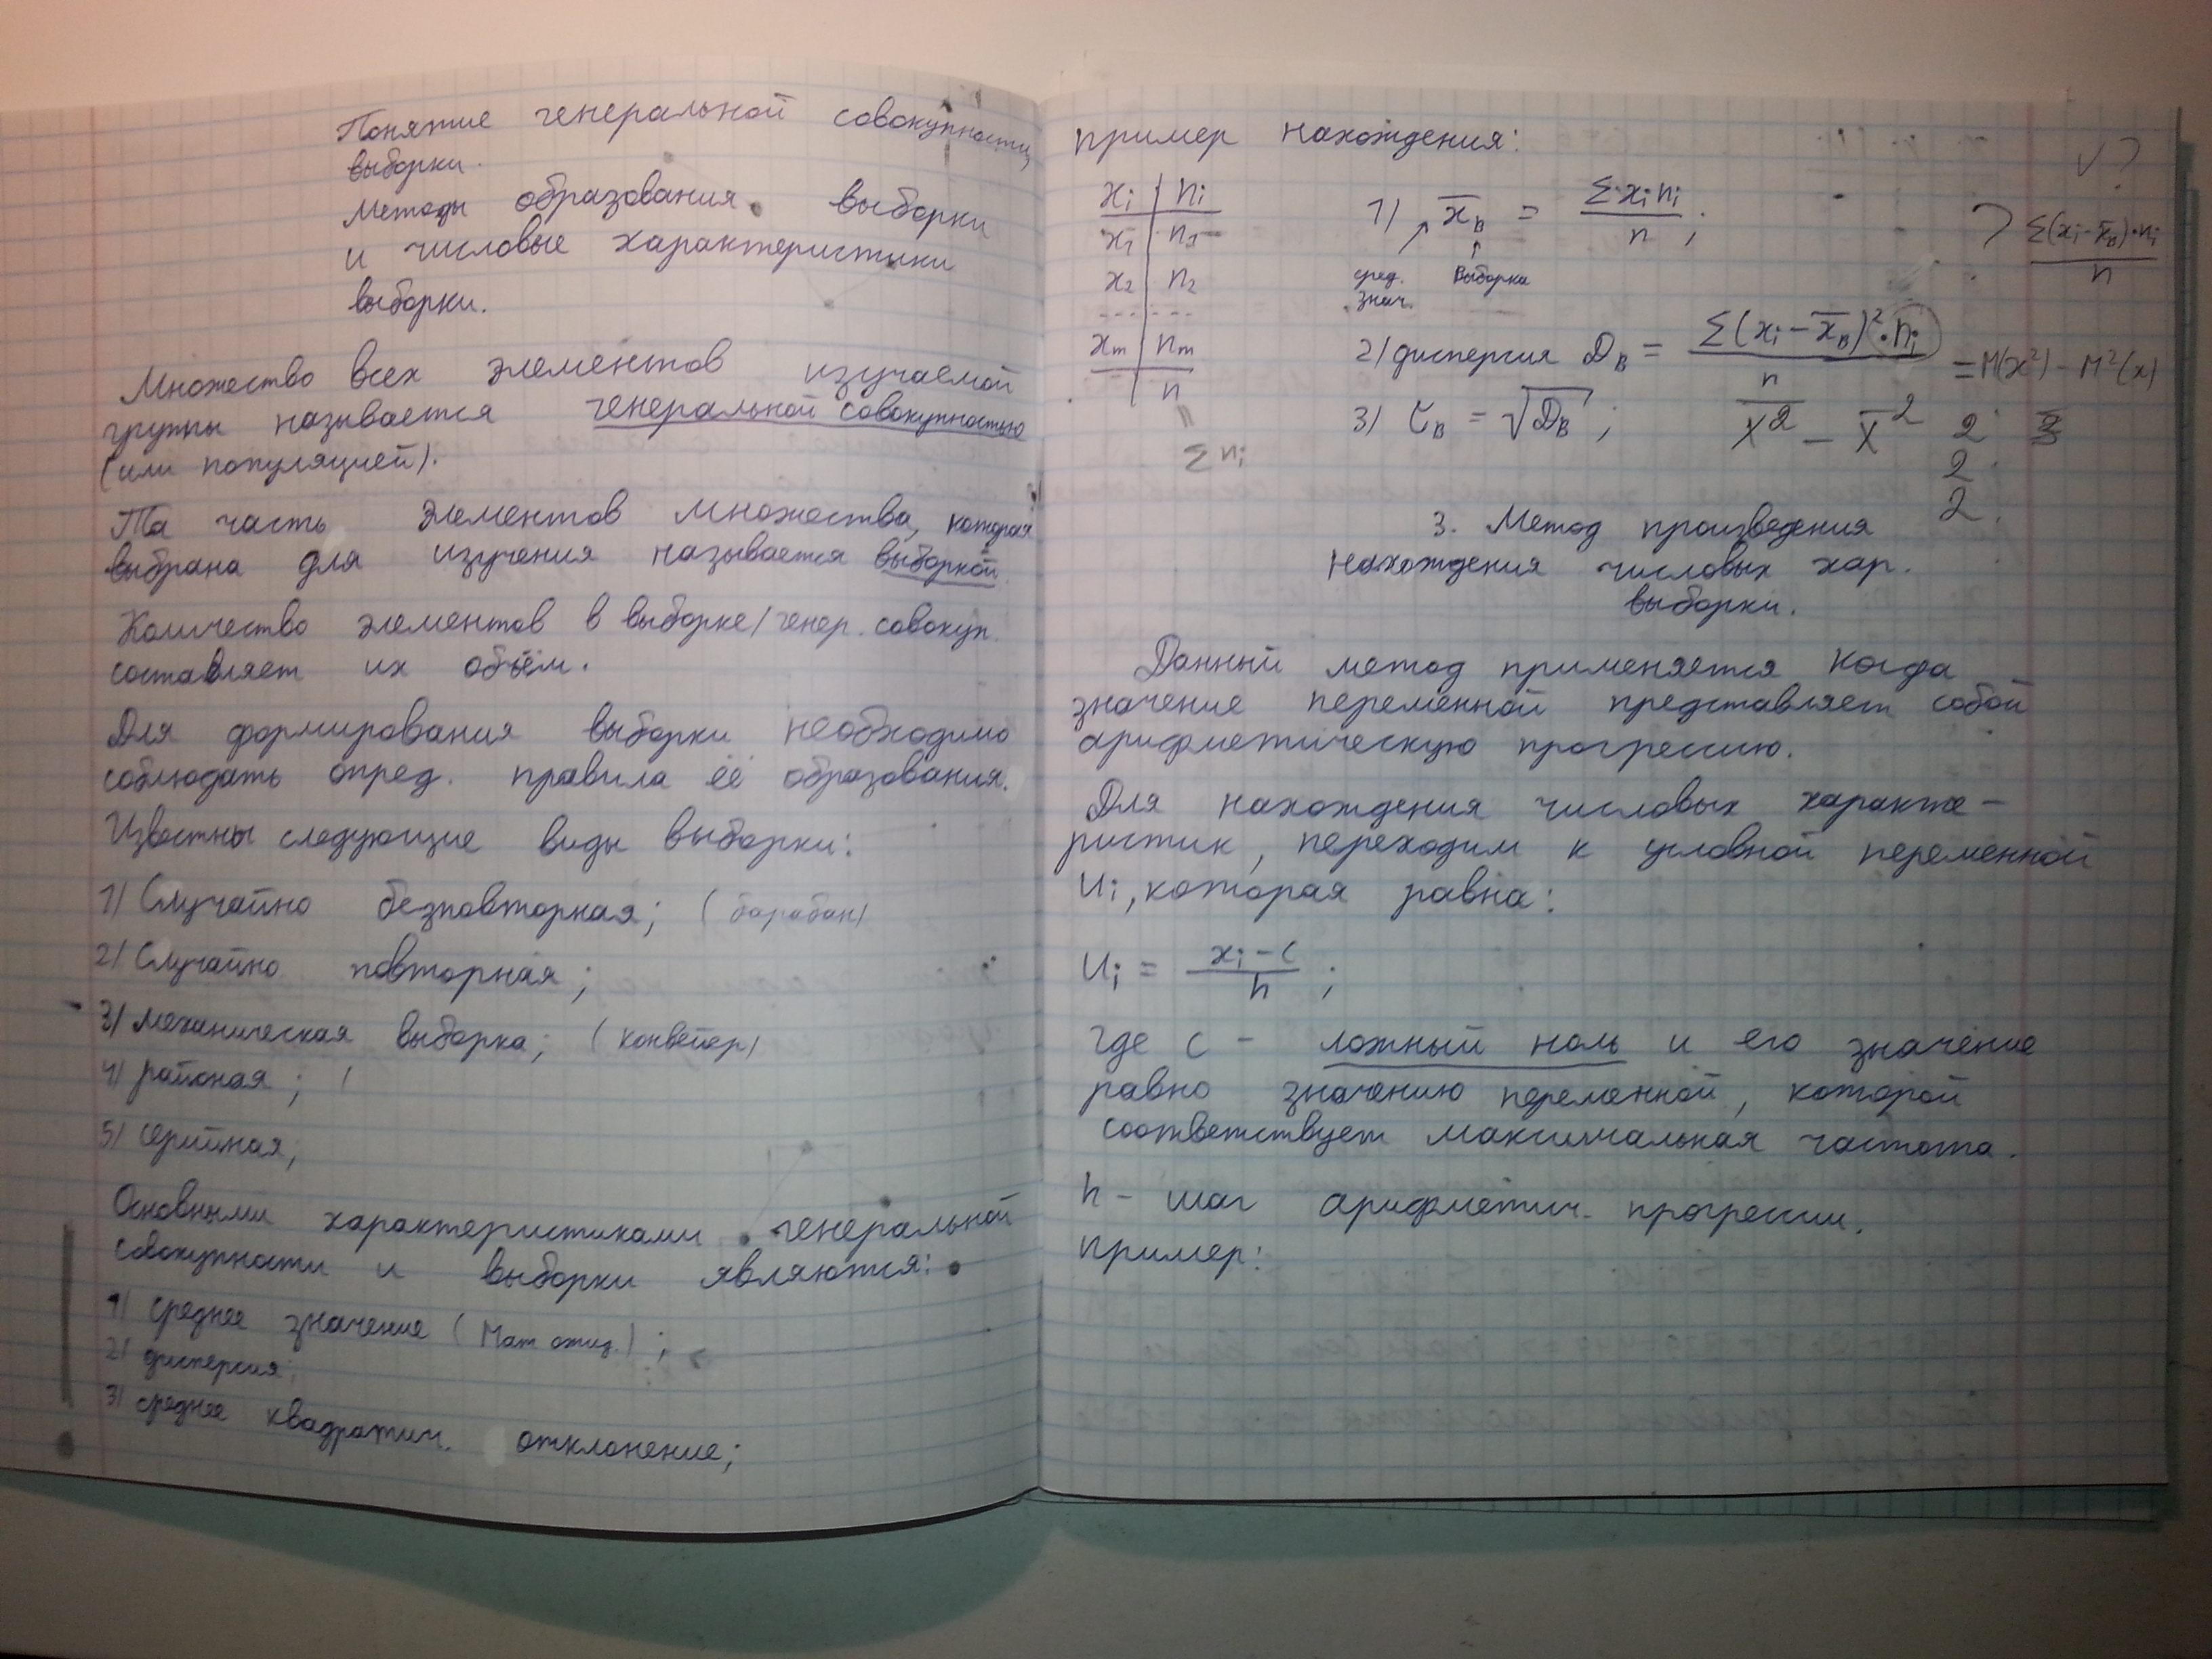 Понятие генеральной совокупности,
выборки.
Методы образования выборки
и числовые характеристики
выборки.
Множество всех элементов изучаемой
группы называется генеральной совокупностью
(или популяцией).
Та часть элементов множества, которая
выбрана для изучения называется выборкой.
Количество элементов в выборке/генер. совокуп.
составляет их объём.
Для формирования выборки необходимо
соблюдать опред. правила её образования.
Известны следующие виды выборки:
1) Случайно безповторная; (барабан)
2) Случайно повторная;
3) механическая выборка; (конвейер)
4) районая;
5) серийная;
Основными характеристиками генеральной
совокупности и выборки являются:
1) среднее значение (Мат ожид.);
2) дисперсия;
3) среднее квадратич. отклонение;
пример нахождения:
xi | ni
x1 | n1
x2 | n2
... ...
xm | nm
n
= Σ ni
1) x̄в = Σ xi ni / n ;
сред. знач. выборка
? Σ(xi - x̄в)·ni / n
2) дисперсия Dв = Σ(xi - x̄в)²·ni / n = M(x²) - M²(x)
3) τв = √Dв ; x̄² - x̄² 2
2
2
3. Метод произведения
нахождения числовых хар.
выборки.
Данный метод применяется когда
значение переменной представляет собой
арифметическую прогрессию.
Для нахождения числовых характе-
ристик, переходим к условной переменной
Ui, которая равна:
Ui = xi - c / h ;
где c - ложный ноль и его значение
равно значению переменной, которой
соответствует максимальная частота.
h - шаг арифметич. прогрессии.
пример: